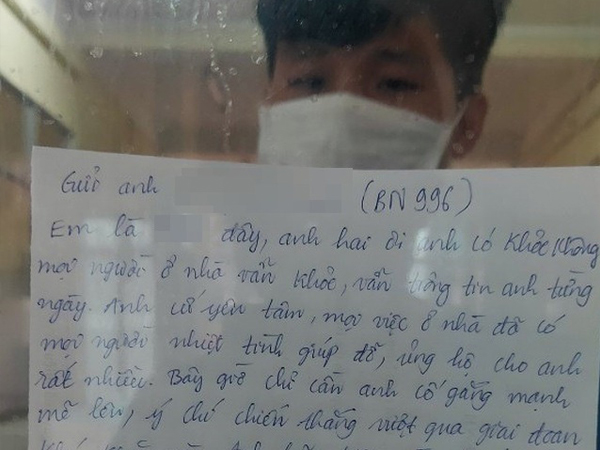 Gửi anh (BN 996)
Em là đây, anh hai ơi anh có khỏe không
mọi người ở nhà vẫn khỏe, vẫn trông tin anh từng
ngày. Anh cứ yên tâm, mọi việc ở nhà đã có
mọi người nhiệt tình giúp đỡ, ủng hộ cho anh
rất nhiều. Bây giờ chỉ cần anh cố gắng mạnh
mẽ lên, ý chí chiến thắng vượt qua giai đoạn